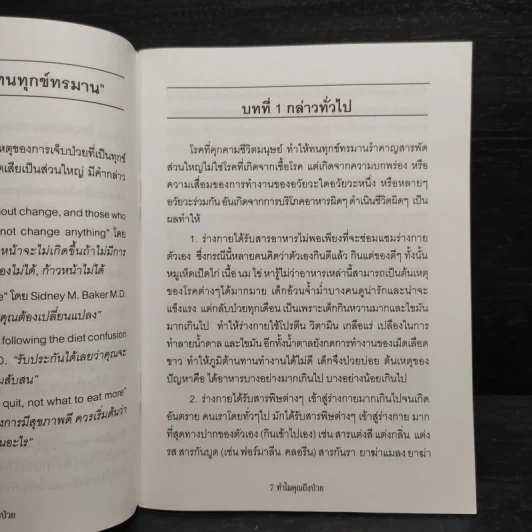 ทนทุกข์ทรมาน"
เหตุของการเจ็บป่วยที่เป็นทุกข์
เสียเป็นส่วนใหญ่ มีคำกล่าว
out change, and those who
not change anything" โดย
หน้าจะไม่เกิดขึ้นถ้าไม่มีการ
องไม่ได้, ก้าวหน้าไม่ได้
e" โดย Sidney M. Baker M.D.
คุณต้องเปลี่ยนแปลง"
following the diet confusion
D. "รับประกันได้เลยว่าคุณจะ
มสับสน"
quit, not what to eat more"
งการมีสุขภาพดี ควรเริ่มต้นว่า
นอะไร"
ถึงป่วย
บทที่ 1 กล่าวทั่วไป
โรคที่คุกคามชีวิตมนุษย์ ทำให้ทนทุกข์ทรมานรำคาญสารพัด
ส่วนใหญ่ไม่ใช่โรคที่เกิดจากเชื้อโรค แต่เกิดจากความบกพร่อง หรือ
ความเสื่อมของการทำงานของอวัยวะใดอวัยวะหนึ่ง หรือหลายๆ
อวัยวะร่วมกัน อันเกิดจากการบริโภคอาหารผิดๆ ดำเนินชีวิตผิดๆ เป็น
ผลทำให้
1. ร่างกายได้รับสารอาหารไม่พอเพียงที่จะซ่อมแซมร่างกาย
ตัวเอง ซึ่งกรณีนี้หลายคนคิดว่าตัวเองกินดีแล้ว กินแต่ของดีๆ ทั้งนั้น
หมูเห็ดเป็ดไก่ เนื้อ นม ไข่ หารู้ไม่ว่าอาหารเหล่านี้สามารถเป็นต้นเหตุ
ของโรคต่างๆได้มากมาย เด็กอ้วนจ้ำม่ำบางคนดูน่ารักและน่าจะ
แข็งแรง แต่กลับป่วยทุกเดือน เป็นเพราะเด็กกินหวานมากและไขมัน
มากเกินไป ทำให้ร่างกายใช้โปรตีน วิตามิน เกลือแร่ เปลืองในการ
ทำลายน้ำตาล และไขมัน อีกทั้งน้ำตาลยังกดการทำงานของเม็ดเลือด
ขาว ทำให้ภูมิต้านทานทำงานได้ไม่ดี เด็กจึงป่วยบ่อย ต้นเหตุของ
ปัญหาคือ ได้อาหารบางอย่างมากเกินไป บางอย่างน้อยเกินไป
2. ร่างกายได้รับสารพิษต่างๆ เข้าสู่ร่างกายมากเกินไปจนเกิด
อันตราย คนเราโดยทั่วๆไป มักได้รับสารพิษต่างๆ เข้าสู่ร่างกาย มาก
ที่สุดทางปากของตัวเอง (กินเข้าไปเอง) เช่น สารแต่งสี แต่งกลิ่น แต่ง
รส สารกันบูด (เช่น ฟอร์มาลีน คลอรีน) สารกันรา ยาฆ่าแมลง ยาฆ่า
7 ทำไมคุณถึงป่วย